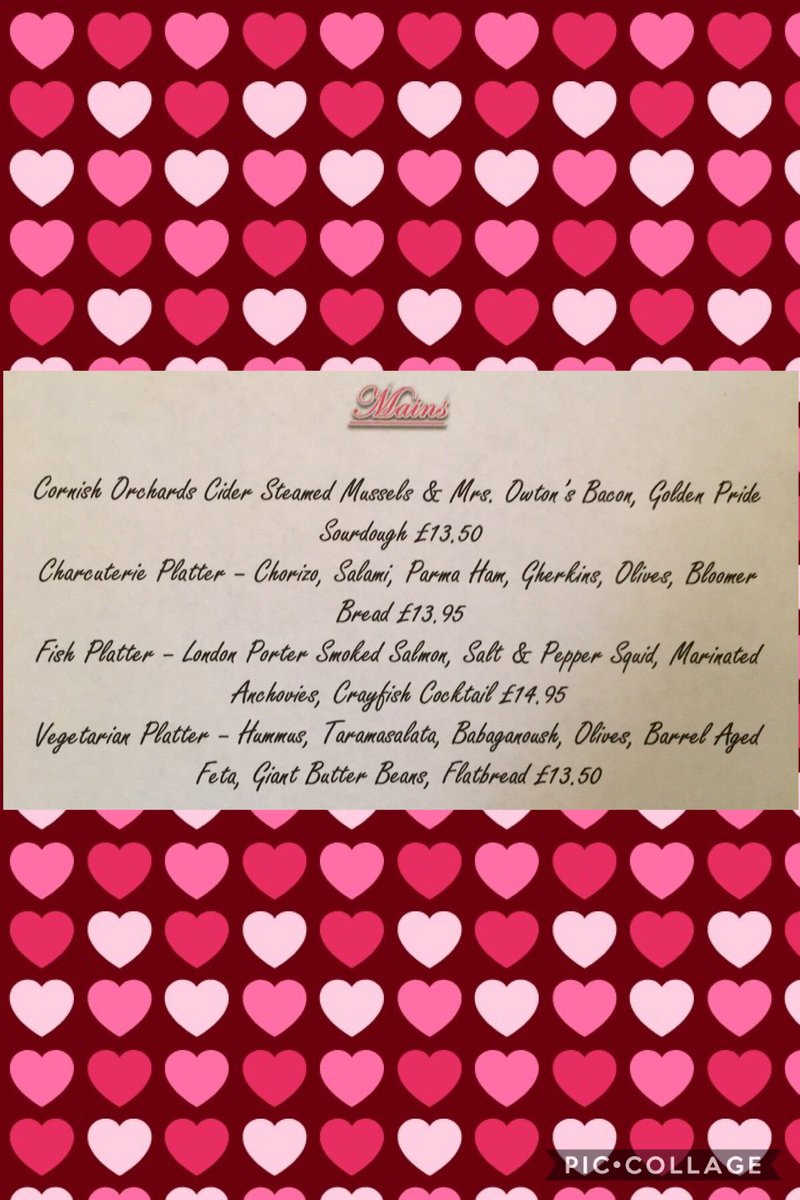 Mains
Cornish Orchards Cider Steamed Mussels & Mrs. Owton's Bacon, Golden Pride
Sourdough £13.50
Charcuterie Platter – Chorizo, Salami, Parma Ham, Gherkins, Olives, Bloomer
Bread £13.95
Fish Platter – London Porter Smoked Salmon, Salt & Pepper Squid, Marinated
Anchovies, Crayfish Cocktail £14.95
Vegetarian Platter – Hummus, Taramasalata, Babaganoush, Olives, Barrel Aged
Feta, Giant Butter Beans, Flatbread £13.50
PIC•COLLAGE